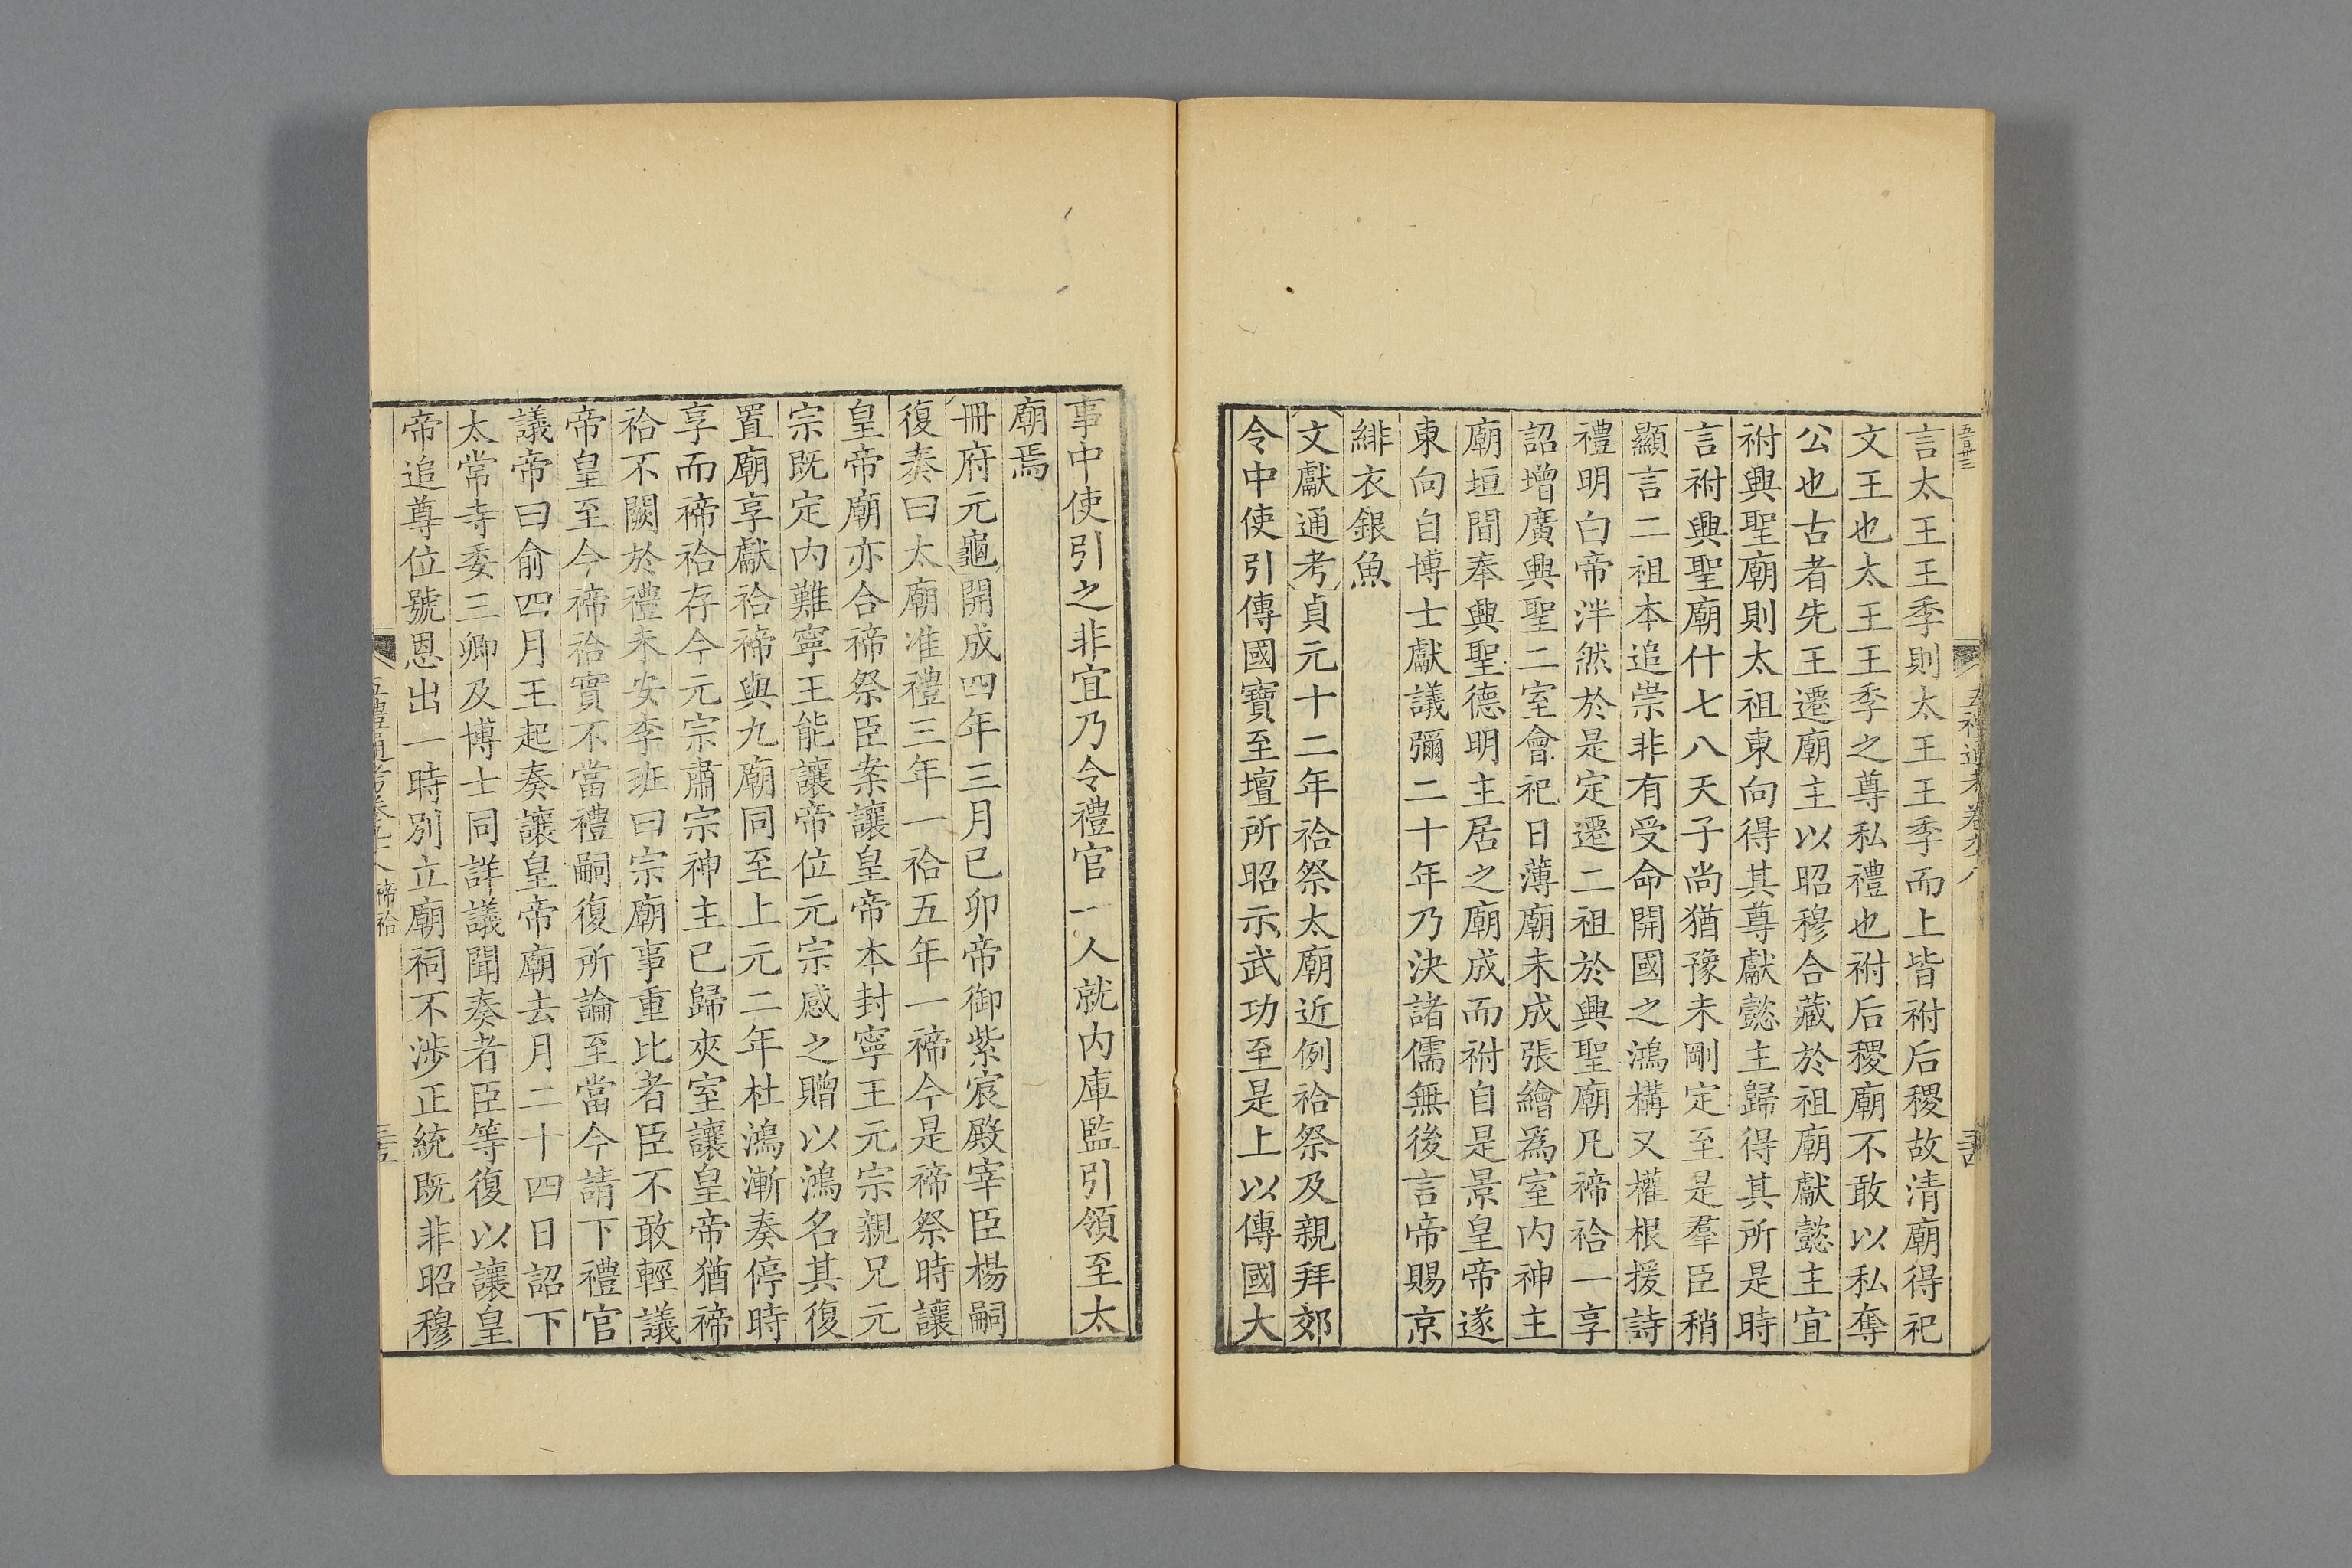 五百卅三
五禮通考卷九八
言太王王季則太王王季而上皆祔后稷故清廟得祀
文王也太王王季之尊私禮也祔后稷廟不敢以私奪
公也古者先王遷廟主以昭穆合藏於祖廟獻懿主宜
祔興聖廟則太祖東向得其尊獻懿主歸得其所是時
言祔興聖廟什七八天子尚猶豫未剛定至是羣臣稍
顯言二祖本追崇非有受命開國之鴻構又權根援詩
禮明白帝泮然於是定遷二祖於興聖廟凡禘祫一享
詔增廣興聖二室會祀日薄廟未成張繪爲室內神主
廟垣間奉興聖德明主居之廟成而祔自是景皇帝遂
東向自博士獻議彌二十年乃決諸儒無後言帝賜京
緋衣銀魚
文獻通考貞元十二年祫祭太廟近例祫祭及親拜郊
令中使引傳國寶至壇所昭示武功至是上以傳國大
事中使引之非宜乃令禮官一人就內庫監引領至太
廟焉
冊府元龜開成四年三月己卯帝御紫宸殿宰臣楊嗣
復奏曰太廟准禮三年一祫五年一禘今是禘祭時讓
皇帝廟亦合禘祭臣案讓皇帝本封寧王元宗親兄元
宗既定內難寧王能讓帝位元宗感之贈以鴻名其復
置廟享獻祫禘與九廟同至上元二年杜鴻漸奏停時
享而禘祫存今元宗肅宗神主已歸夾室讓皇帝猶禘
祫不闕於禮未安李班曰宗廟事重比者臣不敢輕議
帝皇至今禘祫實不當禮嗣復所論至當今請下禮官
議帝曰俞四月王起奏讓皇帝廟去月二十四日詔下
太常寺委三卿及博士同詳議聞奏者臣等復以讓皇
帝追尊位號恩出一時別立廟祠不涉正統既非昭穆
五禮通考卷九十八 禘祫